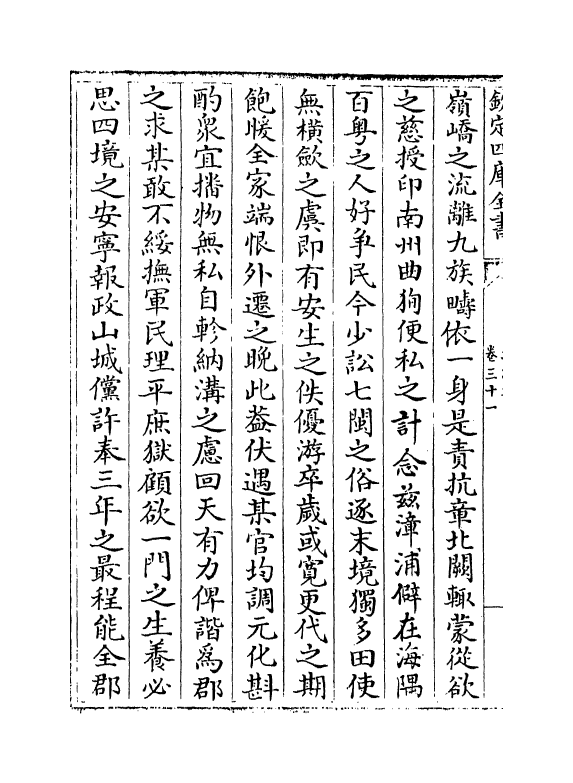 欽定四庫全書
卷三十一
嶺嶠之流離九族疇依一身是責抗章北闕輙蒙從欲
之慈授印南州曲狥便私之計念兹漳浦僻在海隅
百粤之人好爭民今少訟七閩之俗逐末境獨多田使
無橫歛之虞即有安生之佚優游卒歲或寛更代之期
飽煖全家端恨外遷之晚此葢伏遇某官均調元化斟
酌衆宜播物無私自軫納溝之慮回天有力俾諧為郡
之求某敢不綏撫軍民理平庶獄顧欲一門之生養必
思四境之安寧報政山城儻許奉三年之最程能全郡